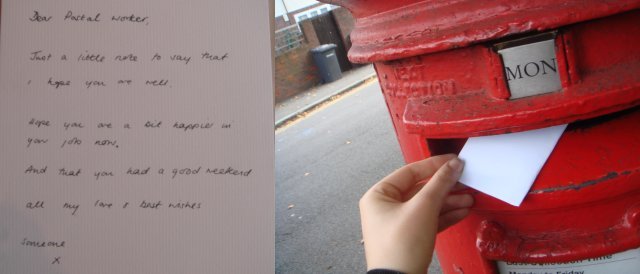 Dear Postal Worker,
Just a little note to say that
i hope you are well.
Hope you are a bit happier in
your job now.
And that you had a good weekend
all my love & best wishes
Someone
x
MON
NEXT
COLLECTION
Last Collection Time
Monday to Friday